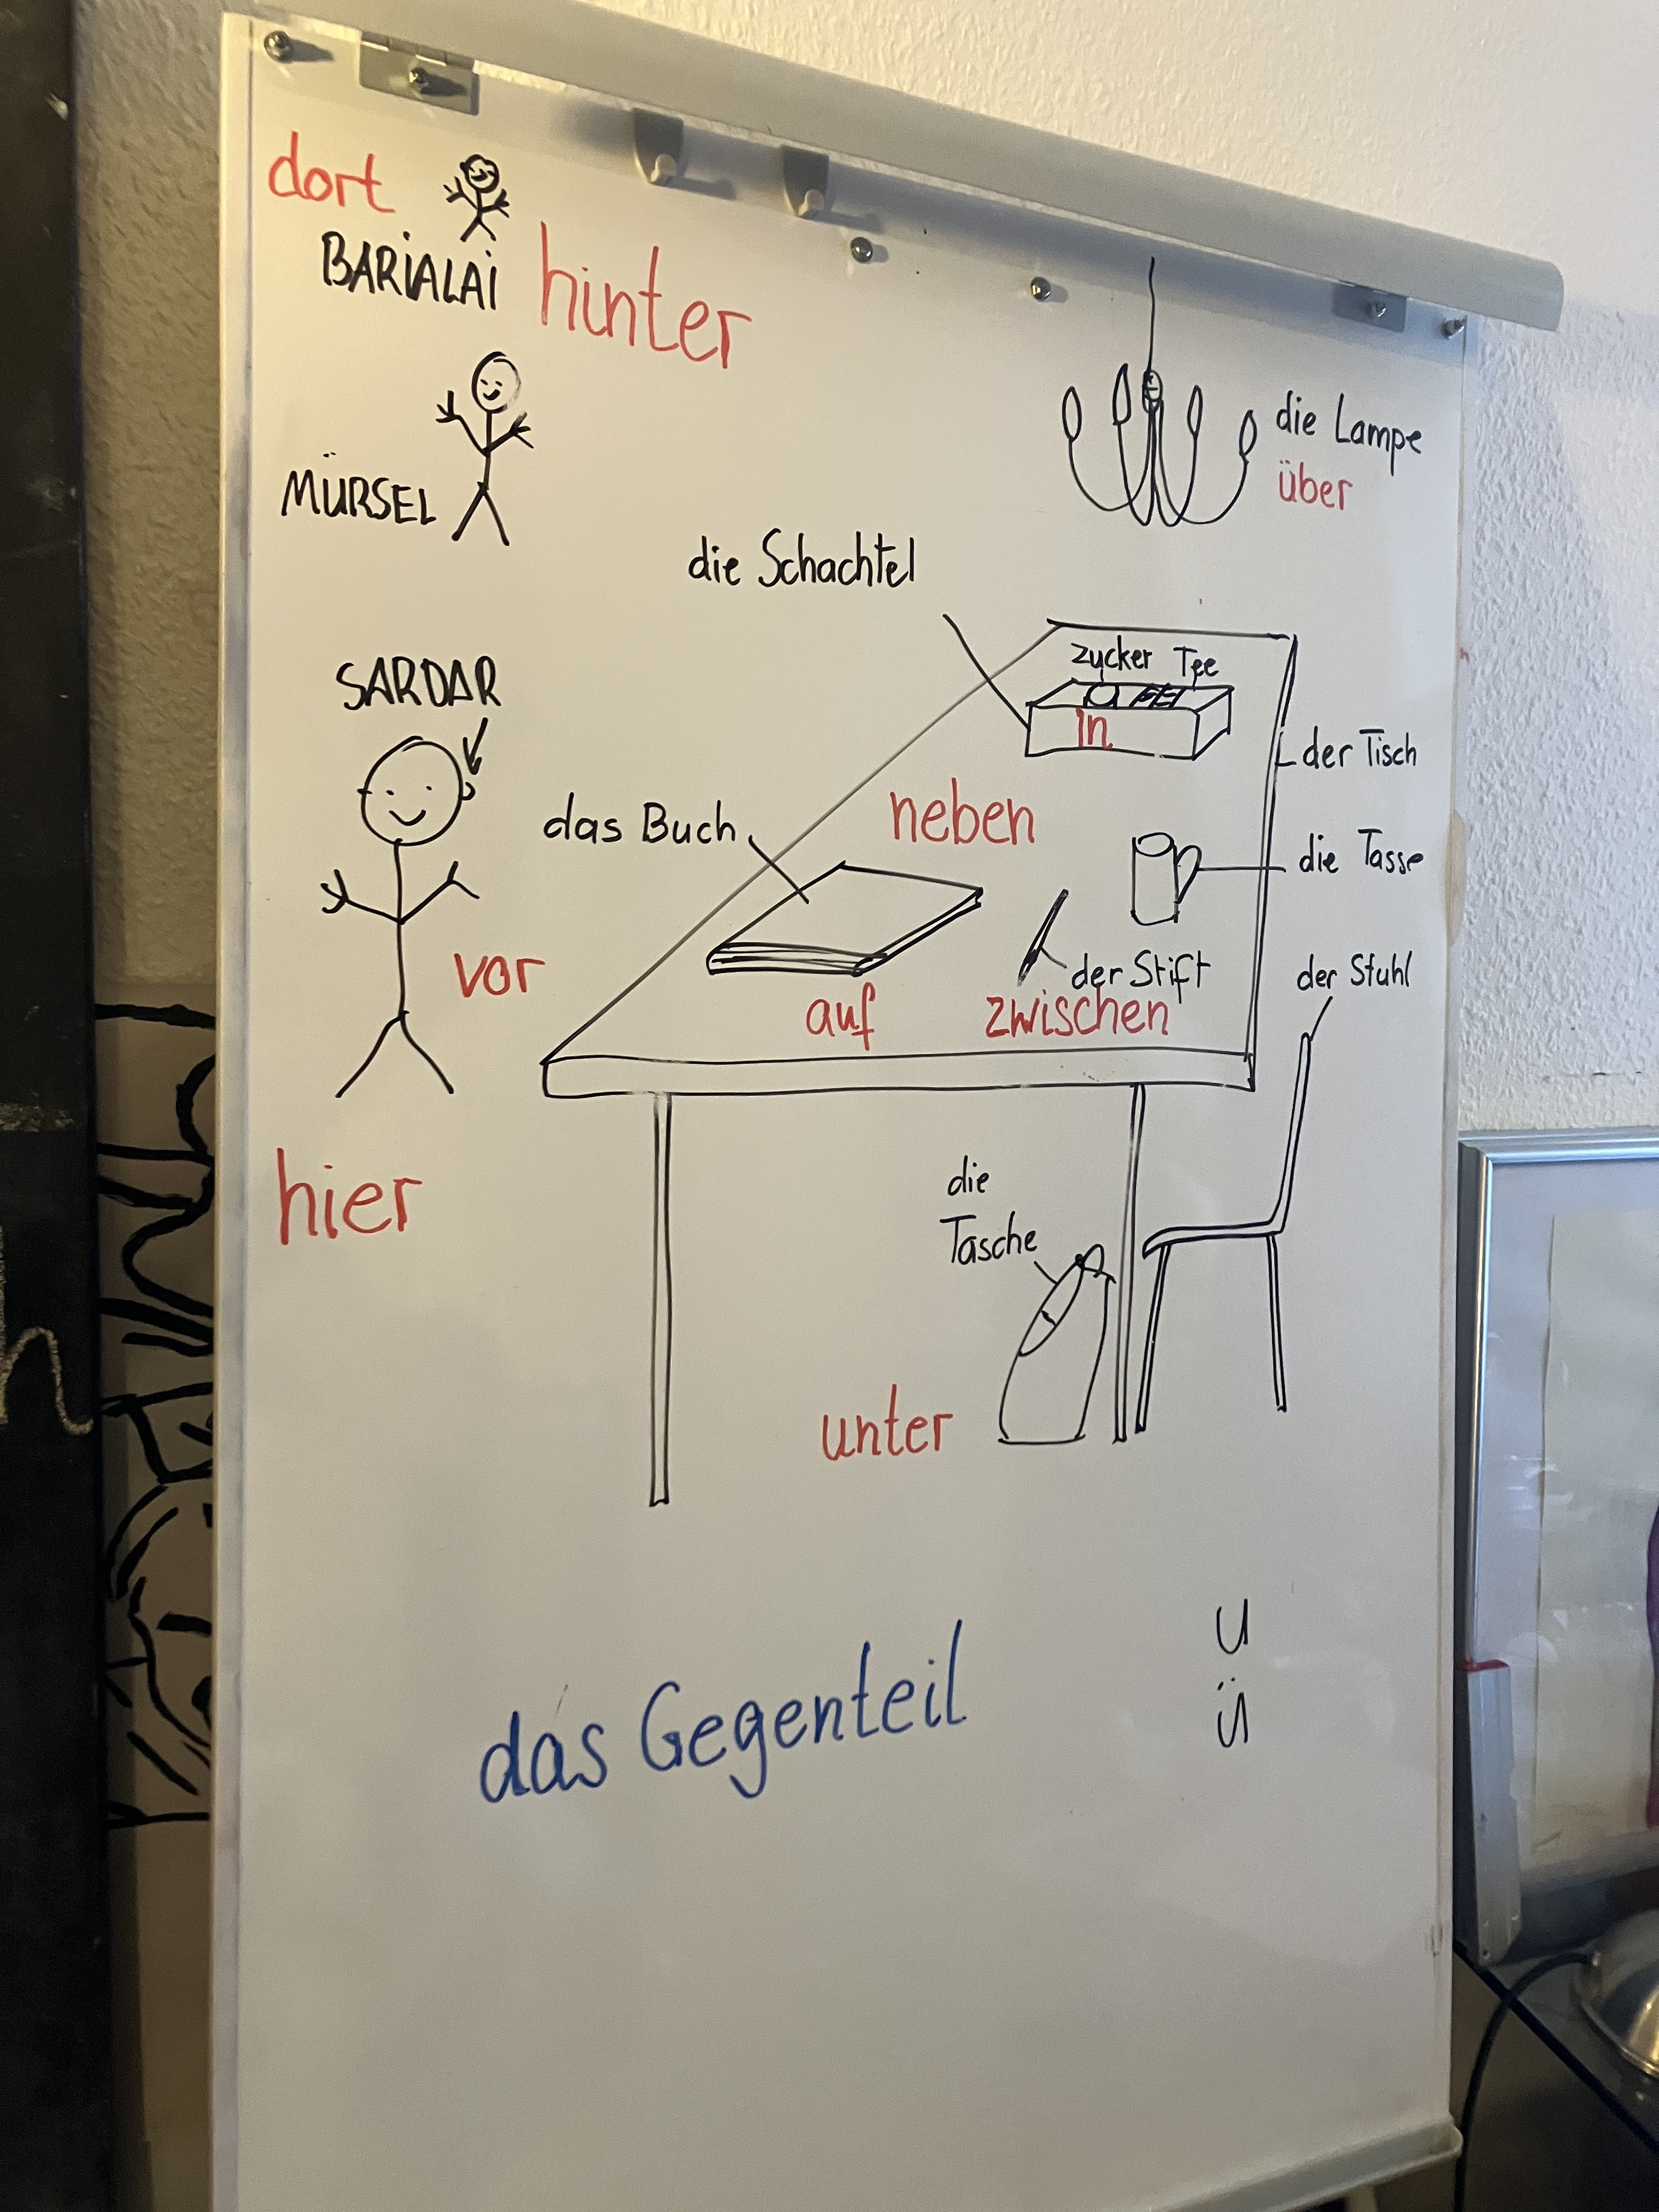 dort
BARIALAI
hinter
MÜRSEL
die Lampe
über
die Schachtel
SARDAR
zucker Tee
in
der Tisch
das Buch
neben
die Tasse
vor
der Stift
der Stuhl
auf
zwischen
hier
die
Tasche
unter
das Gegenteil
u
ü